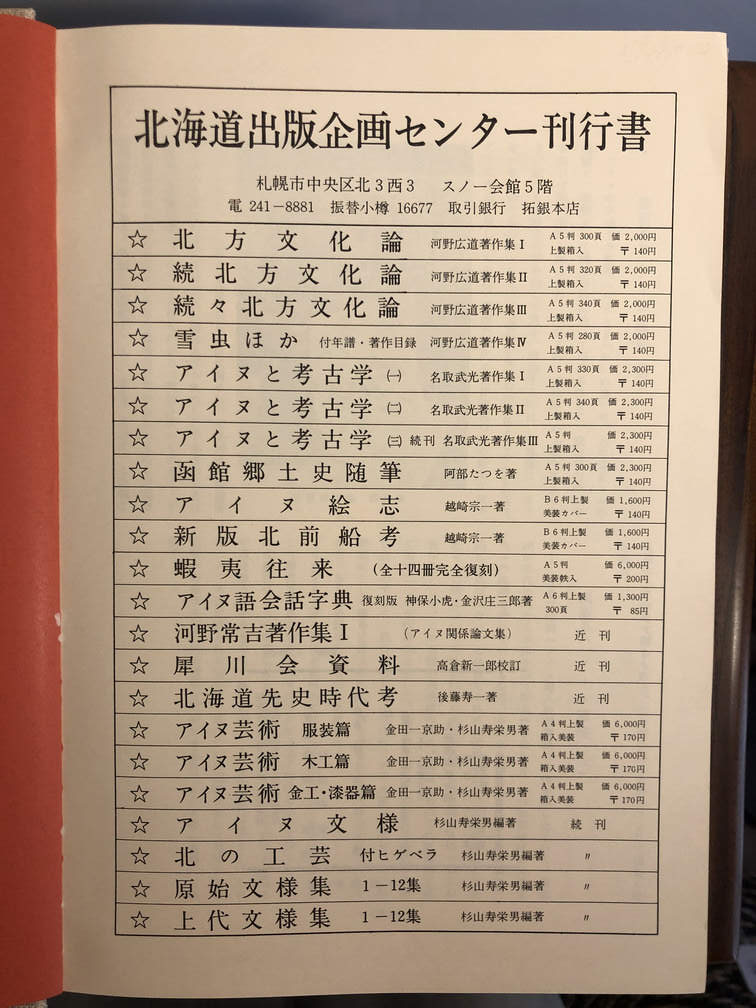 北海道出版企画センター刊行書
札幌市中央区北3西3 スノー会館5階
電 241-8881 振替小樽 16677 取引銀行 拓銀本店
☆ 北方文化論 河野広道著作集Ⅰ A5判 300頁 価 2,000円 上製箱入 〒140円
☆ 続北方文化論 河野広道著作集Ⅱ A5判 320頁 価 2,000円 上製箱入 〒140円
☆ 続々北方文化論 河野広道著作集Ⅲ A5判 340頁 価 2,000円 上製箱入 〒140円
☆ 雪虫ほか 付年譜・著作目録 河野広道著作集Ⅳ A5判 280頁 価 2,000円 上製箱入 〒140円
☆ アイヌと考古学 ㈠ 名取武光著作集Ⅰ A5判 330頁 価 2,300円 上製箱入 〒140円
☆ アイヌと考古学 ㈡ 名取武光著作集Ⅱ A5判 340頁 価 2,300円 上製箱入 〒140円
☆ アイヌと考古学 ㈢ 続刊 名取武光著作集Ⅲ A5判 価 2,300円 上製箱入 〒140円
☆ 函館郷土史随筆 阿部たつを著 A5判 300頁 価 2,300円 上製箱入 〒140円
☆ アイヌ絵志 越崎宗一著 B6判上製 価 1,600円 美装カバー 〒140円
☆ 新版北前船考 越崎宗一著 B6判上製 価 1,600円 美装カバー 〒140円
☆ 蝦夷往来 (全十四冊完全復刻) A5判 価 6,000円 美装帙入 〒200円
☆ アイヌ語会話字典 復刻版 神保小虎・金沢庄三郎著 A6判上製 価 1,300円 300頁 〒85円
☆ 河野常吉著作集Ⅰ (アイヌ関係論文集) 近刊
☆ 犀川会資料 高倉新一郎校訂 近刊
☆ 北海道先史時代考 後藤寿一著 近刊
☆ アイヌ芸術 服装篇 金田一京助・杉山寿栄男著 A4判上製 価 6,000円 箱入美装 〒170円
☆ アイヌ芸術 木工篇 金田一京助・杉山寿栄男著 A4判上製 価 6,000円 箱入美装 〒170円
☆ アイヌ芸術 金工・漆器篇 金田一京助・杉山寿栄男著 A4判上製 価 6,000円 箱入美装 〒170円
☆ アイヌ文様 杉山寿栄男編著 続刊
☆ 北の工芸 付ヒゲベラ 杉山寿栄男編著 〃
☆ 原始文様集 1-12集 杉山寿栄男編著 〃
☆ 上代文様集 1-12集 杉山寿栄男編著 〃